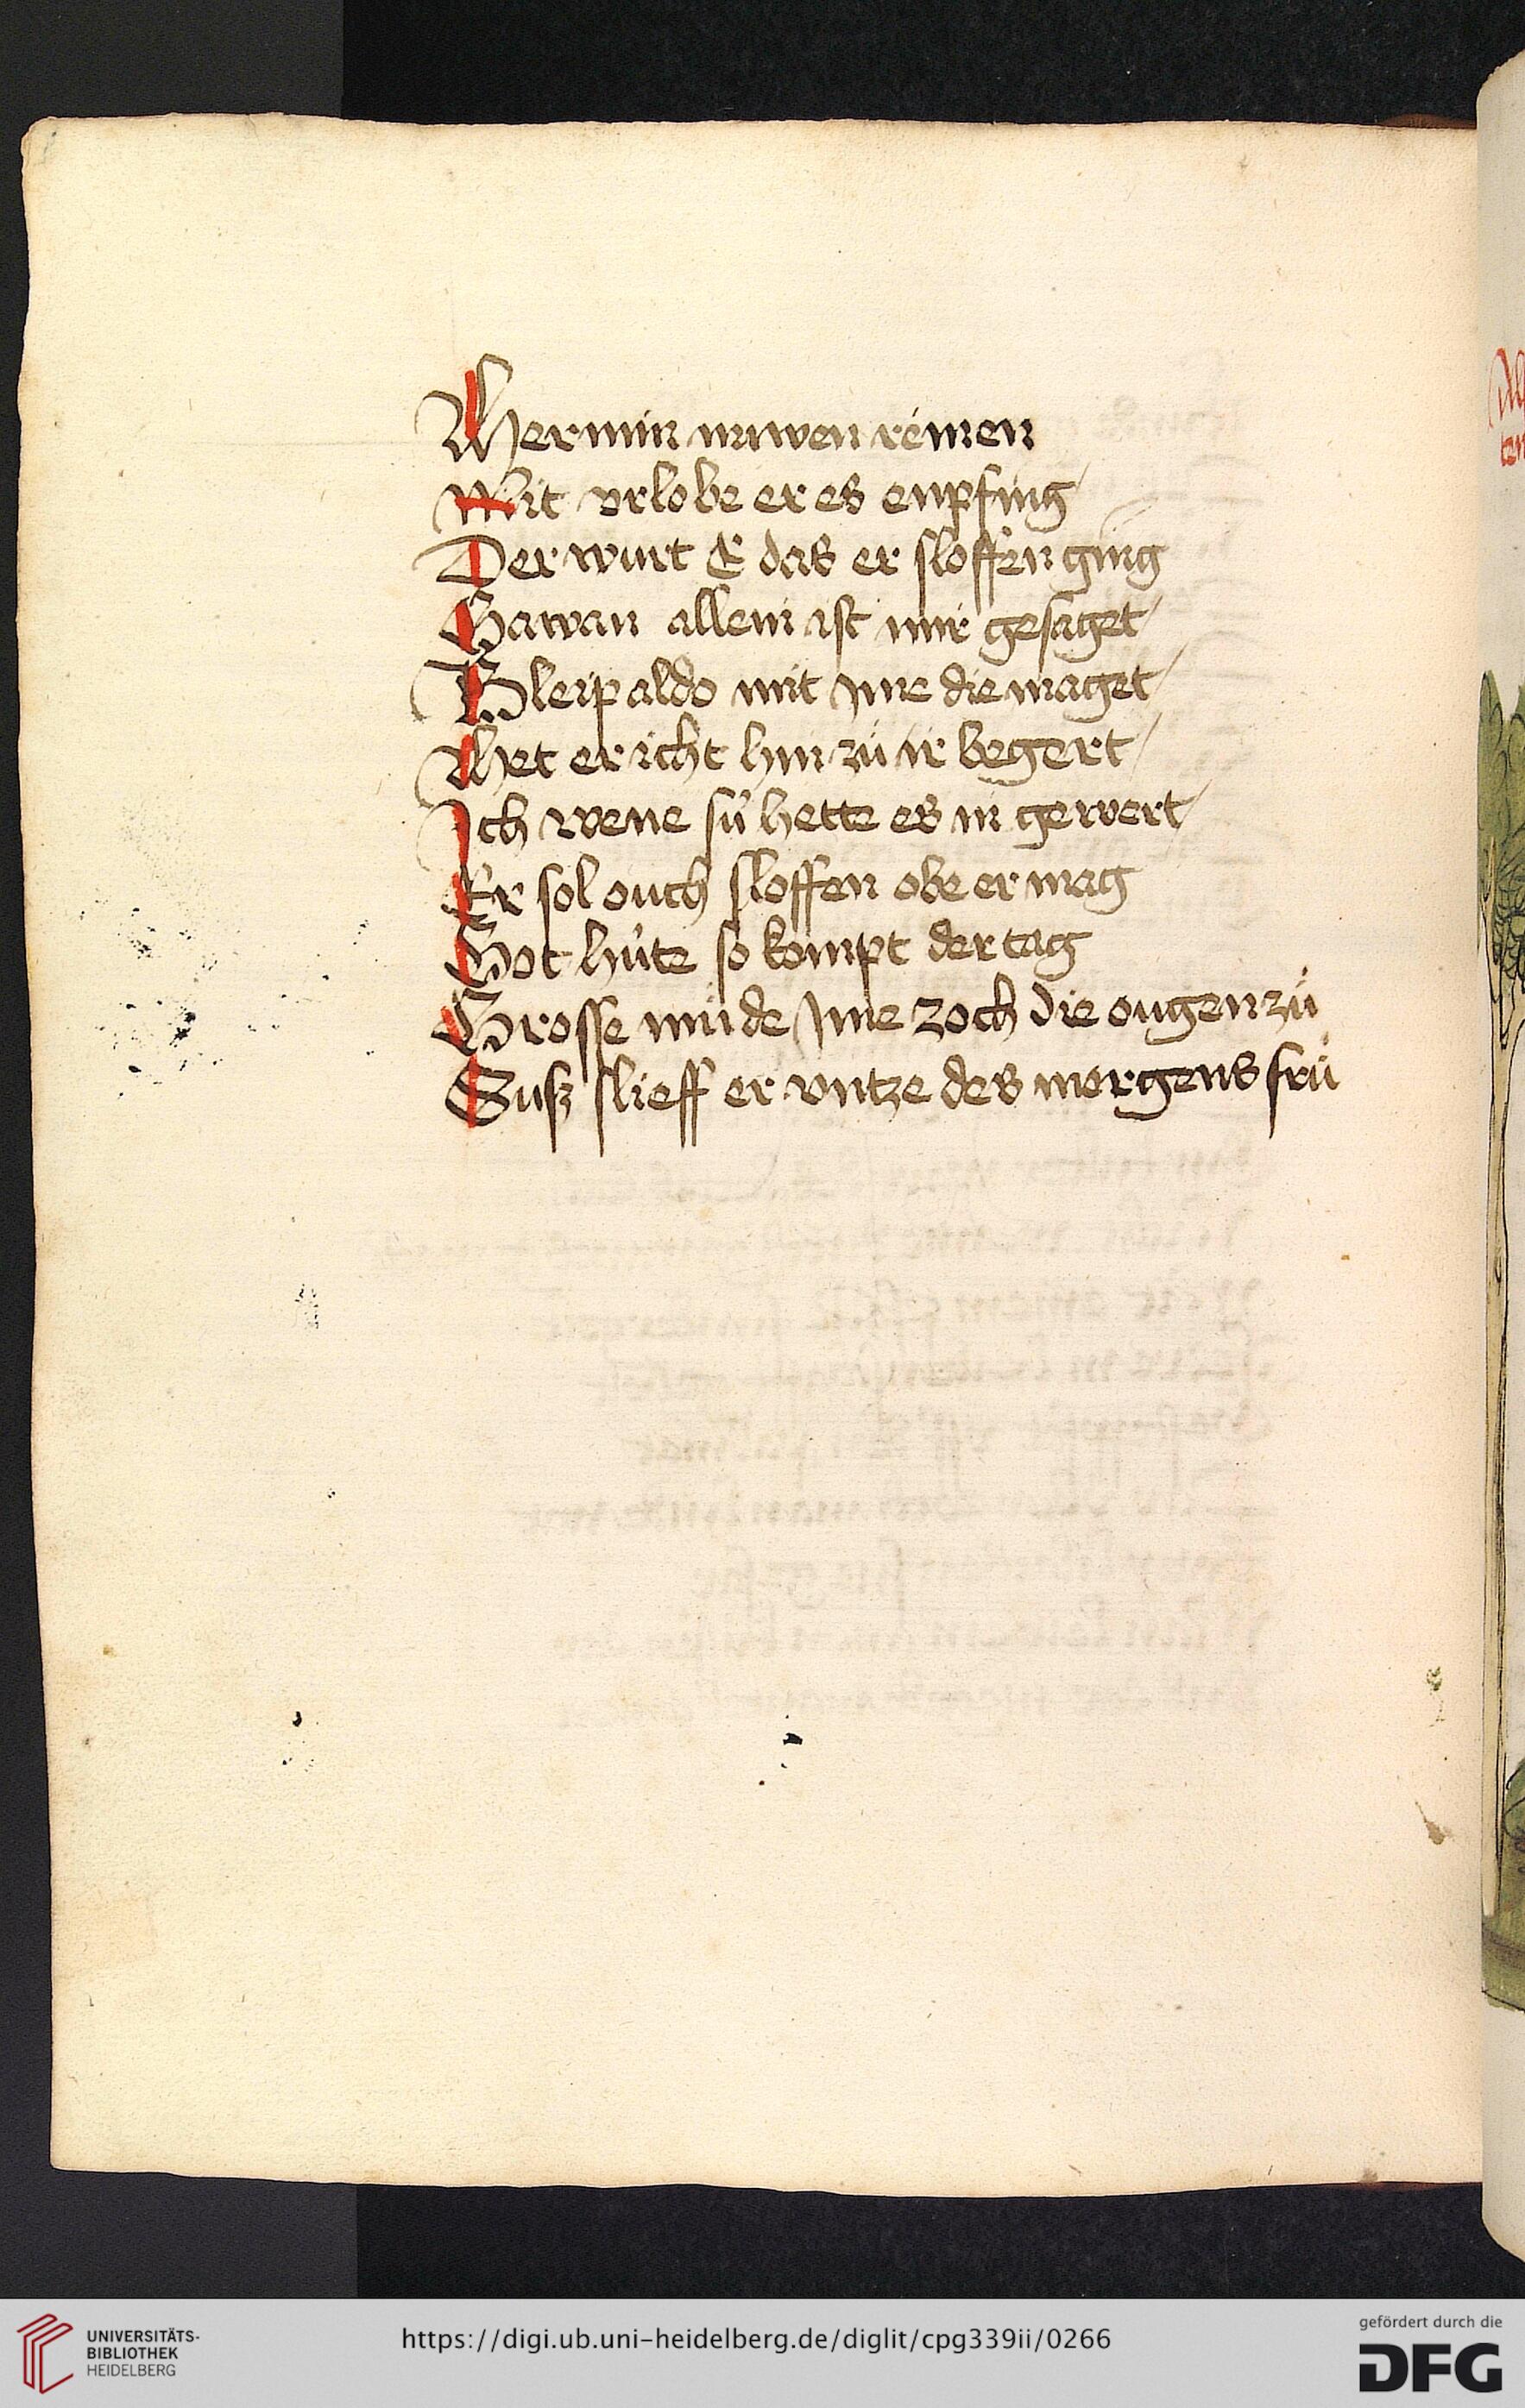 Hermin nuwen remen
Mit vrlobe er es enpfing
Der wurt E das er sloffen ging
Gawan allein ist mir gesaget
Bleip aldo mit yme die maget
Het er icht hin zü ir begert
Ich wene sü hette es in gewert
Er sol ouch sloffen obe er mag
Got hüte so kompt der tag
Grosse müde yme zoch die ougen zü
Suß slieff er vntze des morgens frü
UNIVERSITÄTS-
BIBLIOTHEK
HEIDELBERG
https://digi.ub.uni-heidelberg.de/diglit/cpg339ii/0266
gefördert durch die
DFG